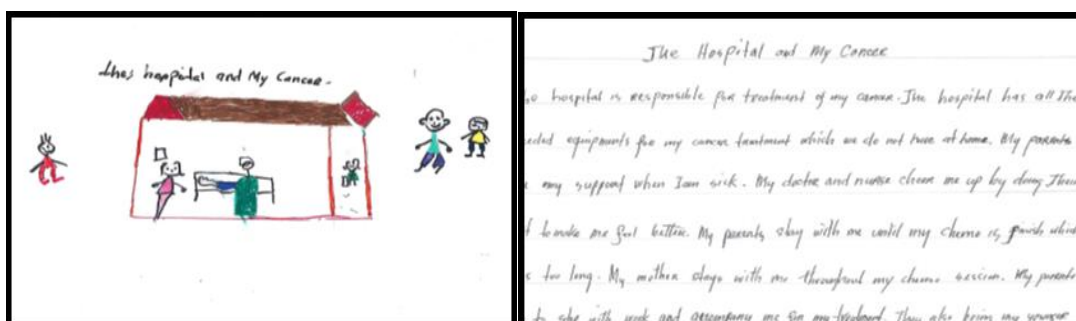 thes hospital and My Cancer.
The Hospital and My Cancer
hospital is responsible for treatment of my cancer. The hospital has all the
equipments for my cancer treatment which we do not have at home. My parents
my support when I am sick. My doctor and nurse cheer me up by doing their
to make me feel better. My parents stay with me until my chemo is finish which
too long. My mother stays with me throughout my chemo session. My parents
with work and accompany me for my treatment. They also bring my younger